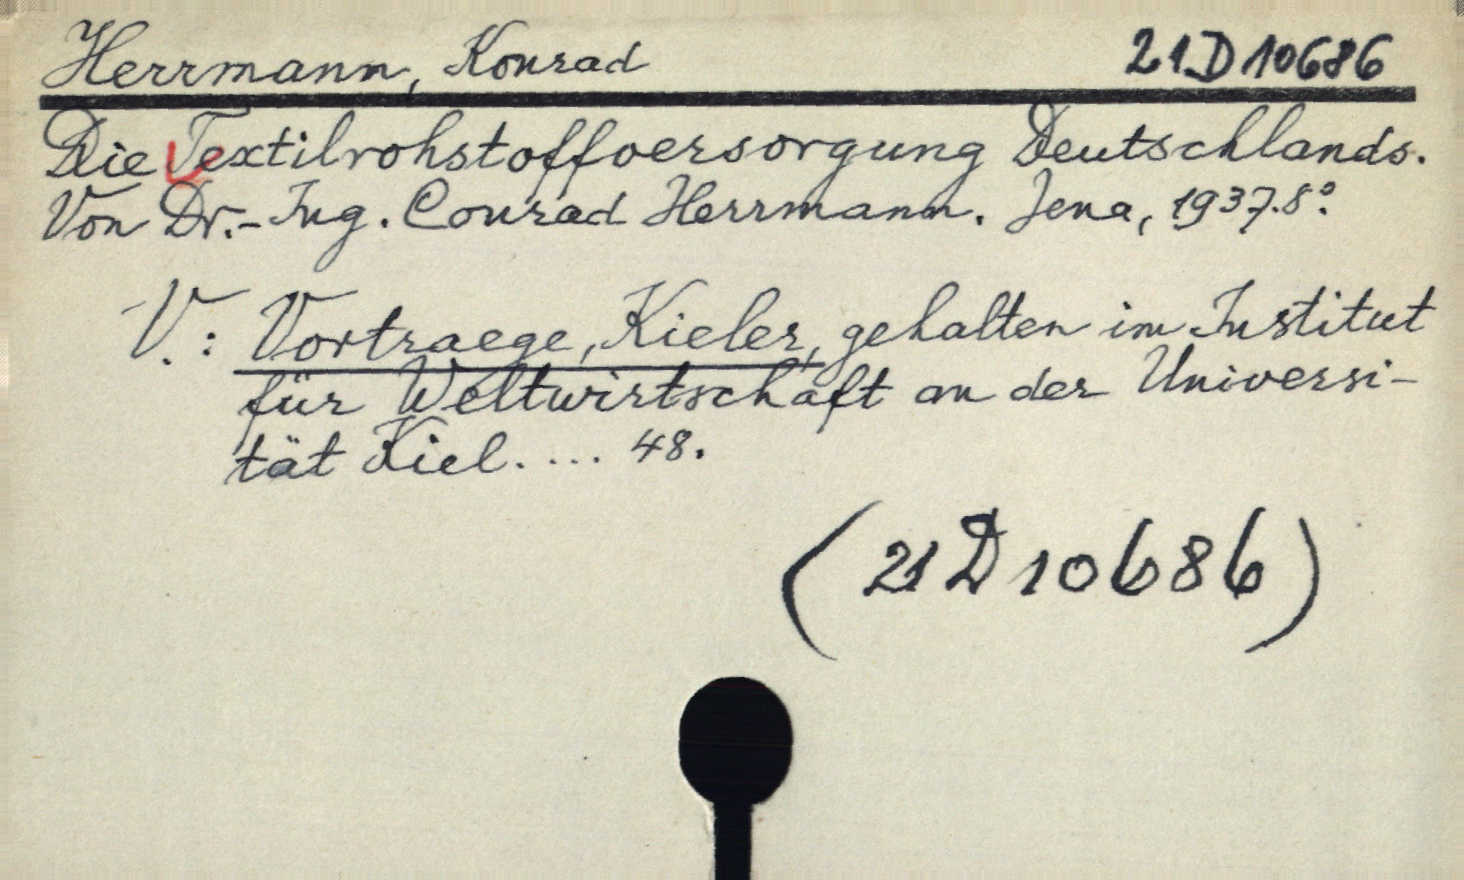 Herrmann, Konrad 21 D 10686
Die Textilrohstoffversorgung Deutschlands.
Von Dr.-Ing. Conrad Herrmann. Jena, 1937. 8°.
V.: Vortraege, Kieler, gehalten im Institut
für Weltwirtschaft an der Universi-
tät Kiel. ... 48.
(21 D 10686)